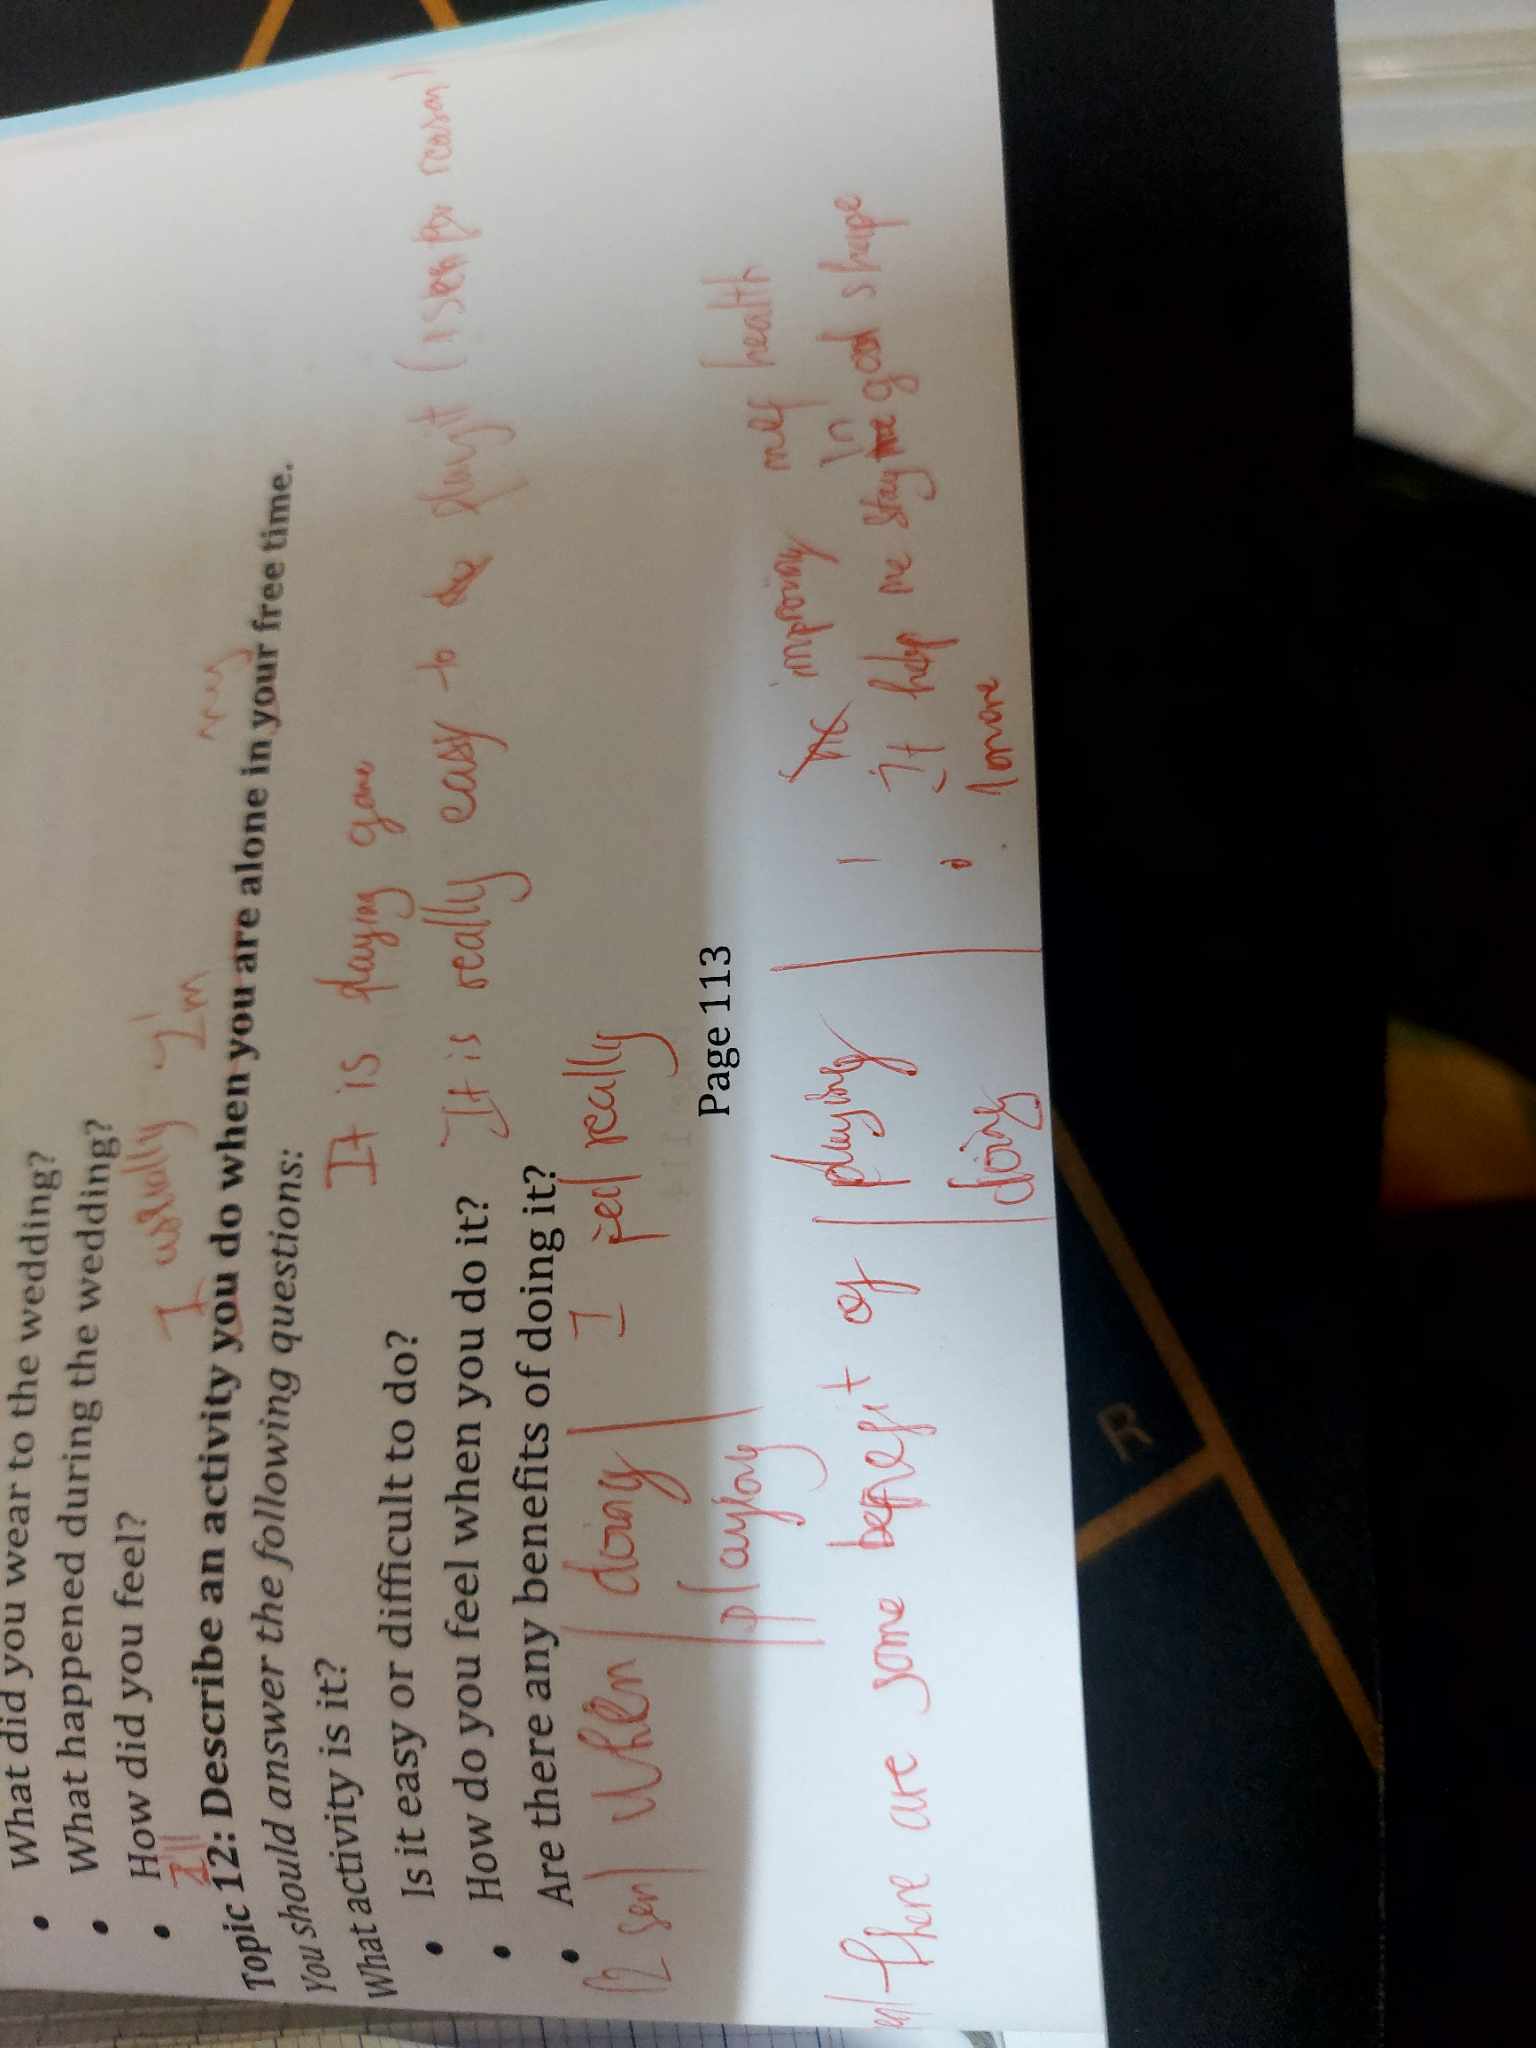 What did you wear to the wedding?
What happened during the wedding?
How did you feel?
I'll I usually I'm my
Topic 12: Describe an activity you do when you are alone in your free time.
You should answer the following questions:
What activity is it?
It is playing game
Is it easy or difficult to do?
How do you feel when you do it?
It is really easy to do play it (1 sen for reason)
Are there any benefits of doing it?
(2 sen) when doing I feel really
playing
Page 113
improving my health
There are some benefit of playing
It help me stay in good shape
doing
1 more
R